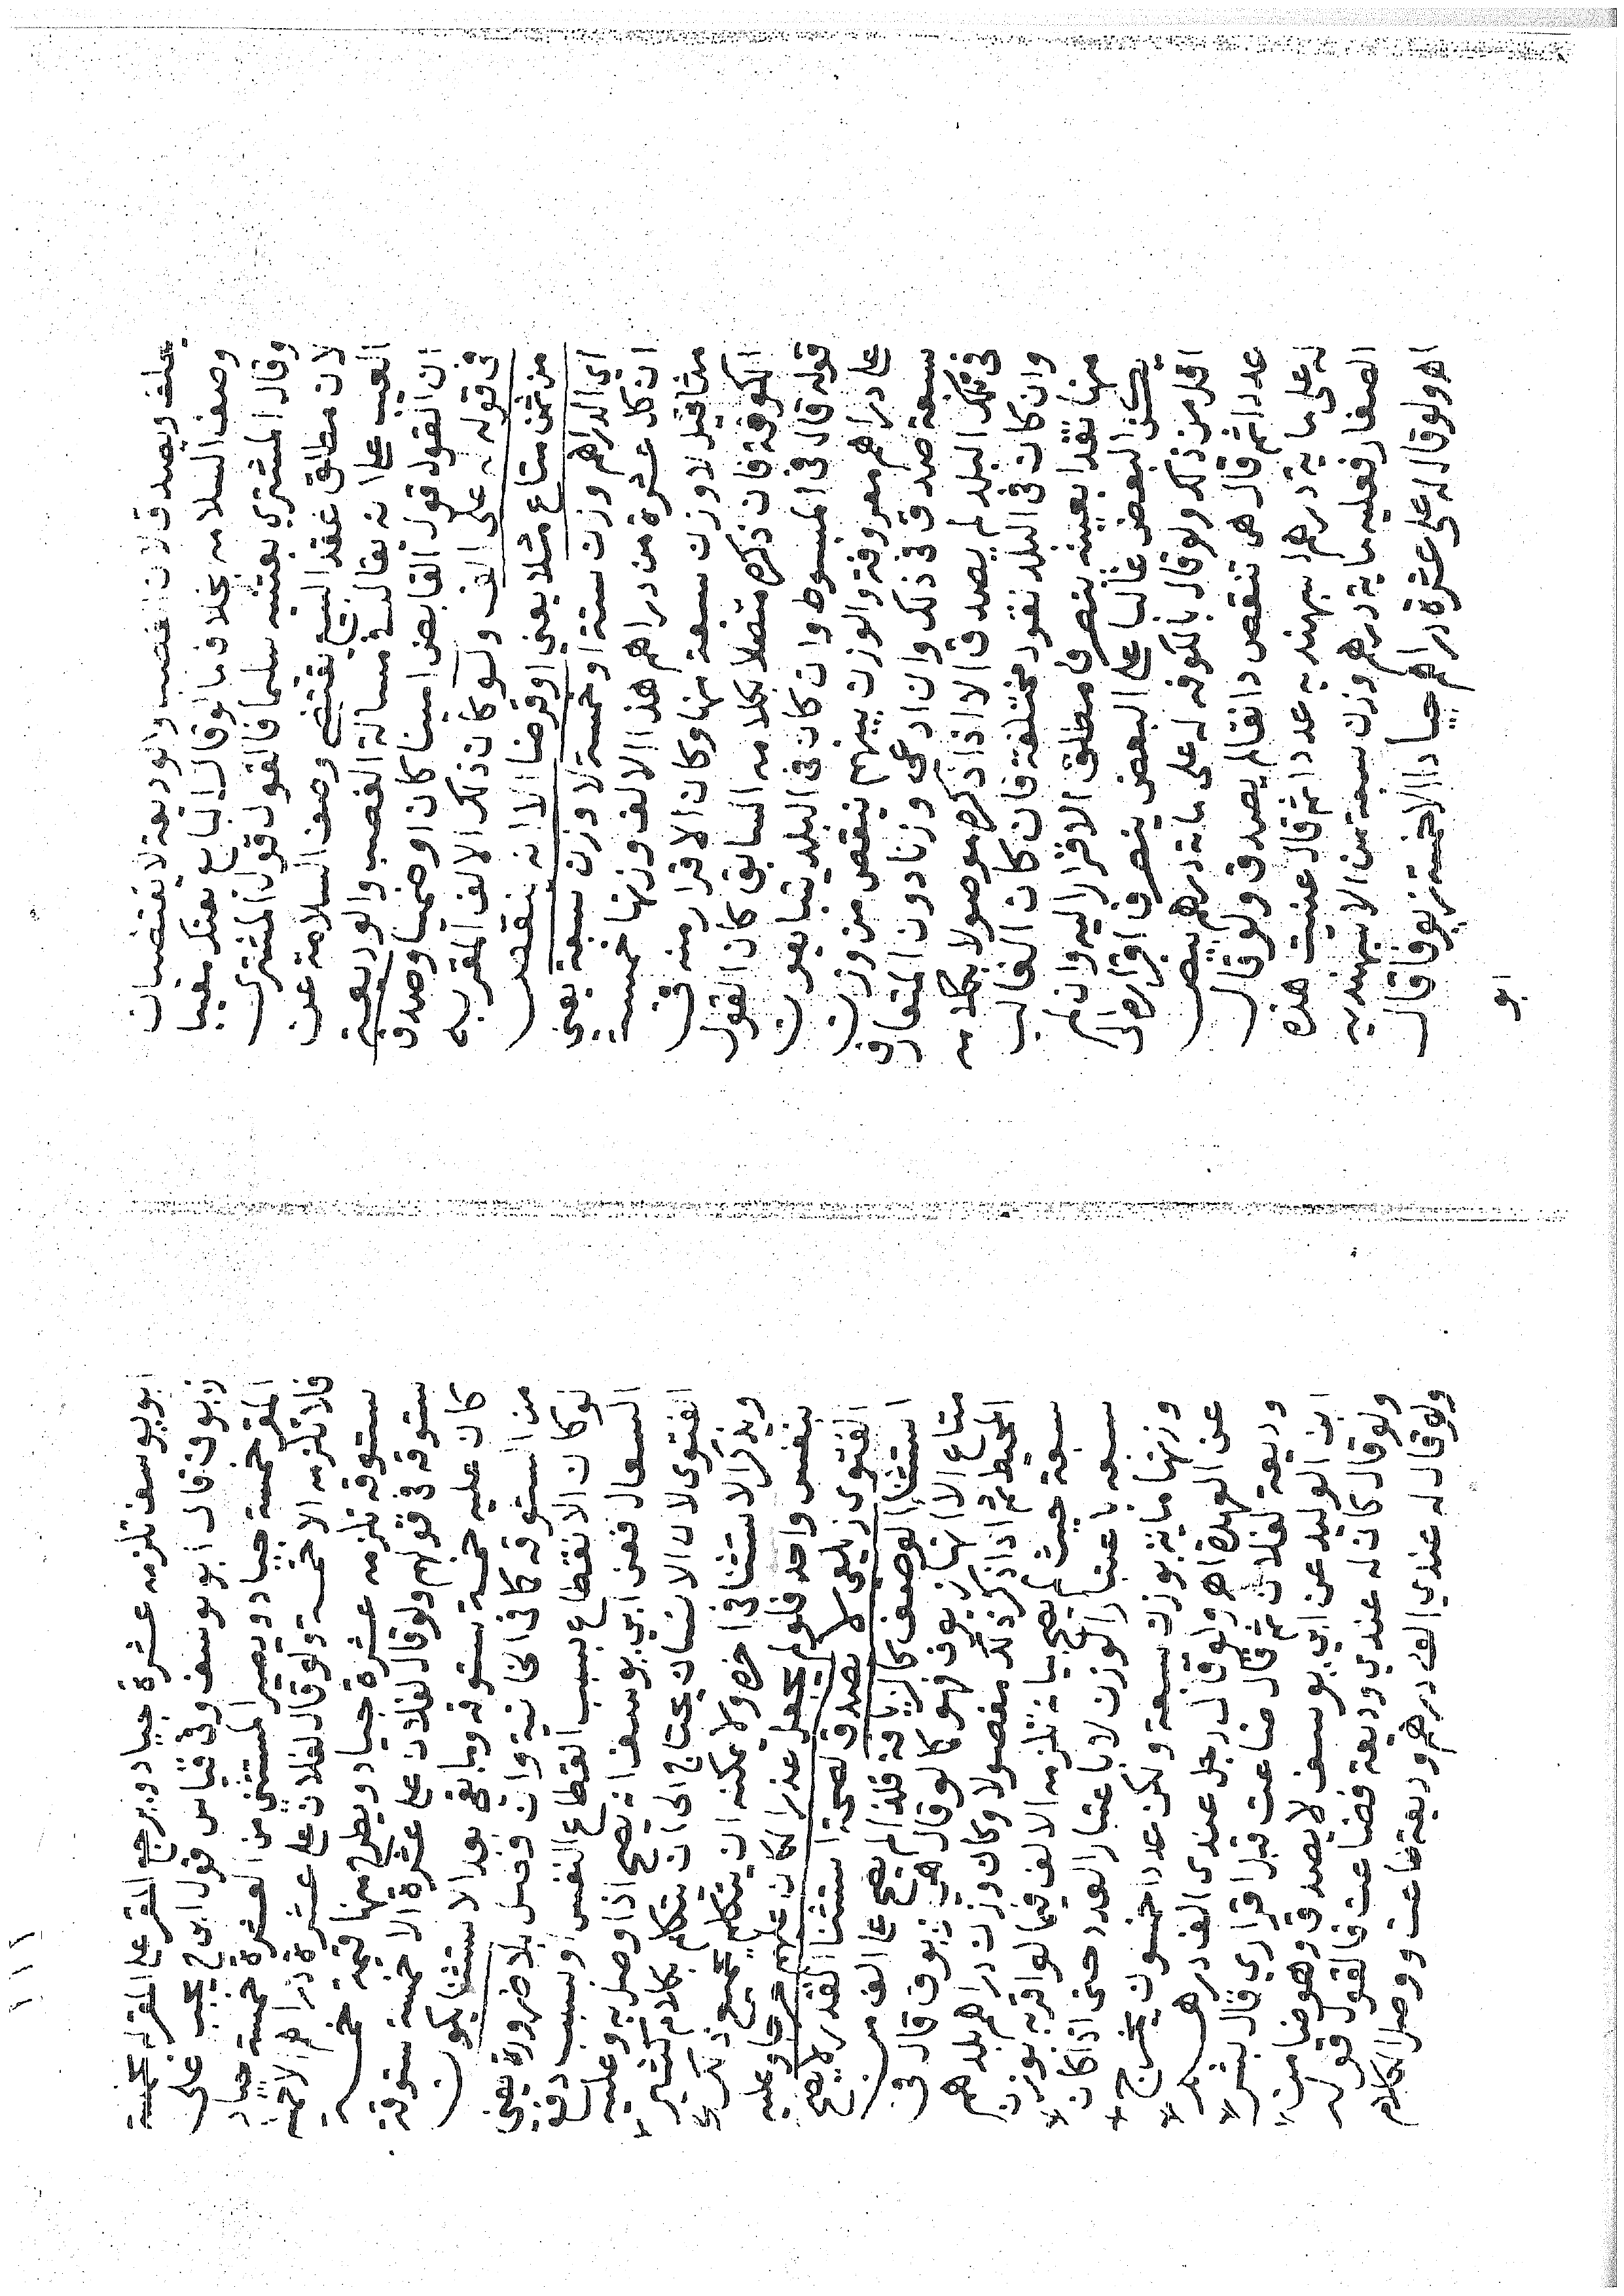 يحلف ويصدق لان الغصب والوديعة لا يقتضيان
وصف السلامة بخلاف ما لو قال البايع بعتك معيبا
وقال المشتري بعتنيه سليما فالقول قول المشتري
لان مطلق عقد البيع يقتضي وصف السلامة عن
العيب على انه يقال في مسالة الغصب والوديعة
ان القول قول القابض امينا كان او ضمينا وصدق
في قوله له على الف ولو كان ذلك الالف المقر به
من ثمن متاع مثلا يعني او قرضا الا انه ينقص
اي الدراهم وزن ستة او خمسة لا وزن سبعة يعني
ان كل عشرة من دراهم هذا الالف وزنها خمسة
مثاقيل لا وزن سبعة منها وكان الاقرار منه في
الكوفة فان ذكره متصلا بكلامه السابق كان القول
قوله قال في المبسوط وان كان في البلد يتبايعون
على دراهم معروفة والوزن بينهم ينقص من وزن
سبعة صدق في ذلك وان ادعى وزنا دون المتعارف
في تلك البلد لم يصدق الا اذا ذكره موصولا بكلامه
وان كان في البلد نقود مختلفة فان كان الغالب
منها نقدا بعينه ينصرف مطلق الاقرار اليه وان لم
يكن البعض غالبا على البعض ينصرف اقراره الى
اقل من ذلك ولو قال بالكوفه له علي ماية درهم بيض
عددا ثم قال هي تنقص دانقا لم يصدق ولو قال
له على ماية درهم اسبهندية عددا ثم قال عنيت هذه
الصغار فعليه ماية درهم وزن سبعة من الاسبهندية
اه ولو قال له علي عشرة دراهم جيادا الا خمسة زيوفا قال
ابو
ابو يوسف تلزمه عشرة جياد ويرجع المقر على المقر له بخمسة
زيوف قال ابو يوسف وفي قياس قول ابي ح يجب على
المقر خمسة جياد ويصير المستثنى من العشرة خمسة جياد
فلا تلزمه الا خمسة ولو قال لفلان علي عشرة دراهم الا خمسة
ستوقه تلزمه عشرة جياد ويطرح منها قيمة خمسة
ستوقه في قولهم ولو قال لفلان علي عشرة الا خمسة ستوقة
كان عليه خمسة ستوقه وما بقي بعد الاستثنا يكون
من الستوقه كا في الخانية وان وفصل بلا ضرورة يعني
لو كان الانقطاع بسبب انقطاع النفس او بسبب دفع
السعال فعن ابي يوسف انه يصح اذا وصل به وعليه
الفتوى لان الانسان يحتاج الى ان يتكلم بكلام كثير
ويذكر الاستثنا في اخره ولا يمكنه ان يتكلم بجميع ذلك
بنفس واحد فلو لم يجعل عذرا لكان عليهم حرجا وعليه
الفتوى زيلعي لا يصدق لصحة استثنا القدر لا يصح
استثنا الوصف كالزيافة فلذا لم يصح على الف من
متاع الا انها زيوف فهو كما لو قال هي زيوف قال في
المحيط ثم اذا ذكر ذلك مفصولا وكان وزن دراهم بلدهم
سبعة حيث لم يصح بيانه تلزمه الالف فيما لو اقر به بوزن
سبعه باعتبار الوزن لا باعتبار العدد حتى اذا كان
وزنها ماية بوزن سبعة ولكن عددا خمسون يخرج
عن العهدة اه ولو قال رجل عندى الف درهم
وديعة لفلان ثم قال ضاعت قبل اقراري قال بشر
ابن الوليد عن ابي يوسف لا يصدق وهو ضامن
ولو قال كان له عندي وديعة فضاعت فالقول قوله
ولو قال له عندي الف درهم وديعة ضاعت ووصل الكلام